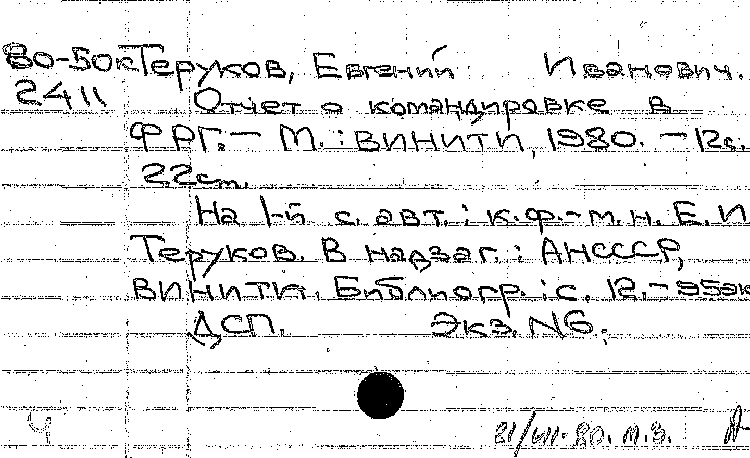 80-50к Теруков, Евгений Иванович.
2411 Отчет о командировке в
ФРГ. — М. : ВИНИТИ, 1980. — 12с.
22см.
На 1-й с. авт. : к.ф.-м.н. Е.И
Теруков. В надзаг. : АНСССР,
ВИНИТИ. Библиогр. : с. 12. — 95эк
ДСП. Экз. N6.
Ч
21/VII-80. м.з.